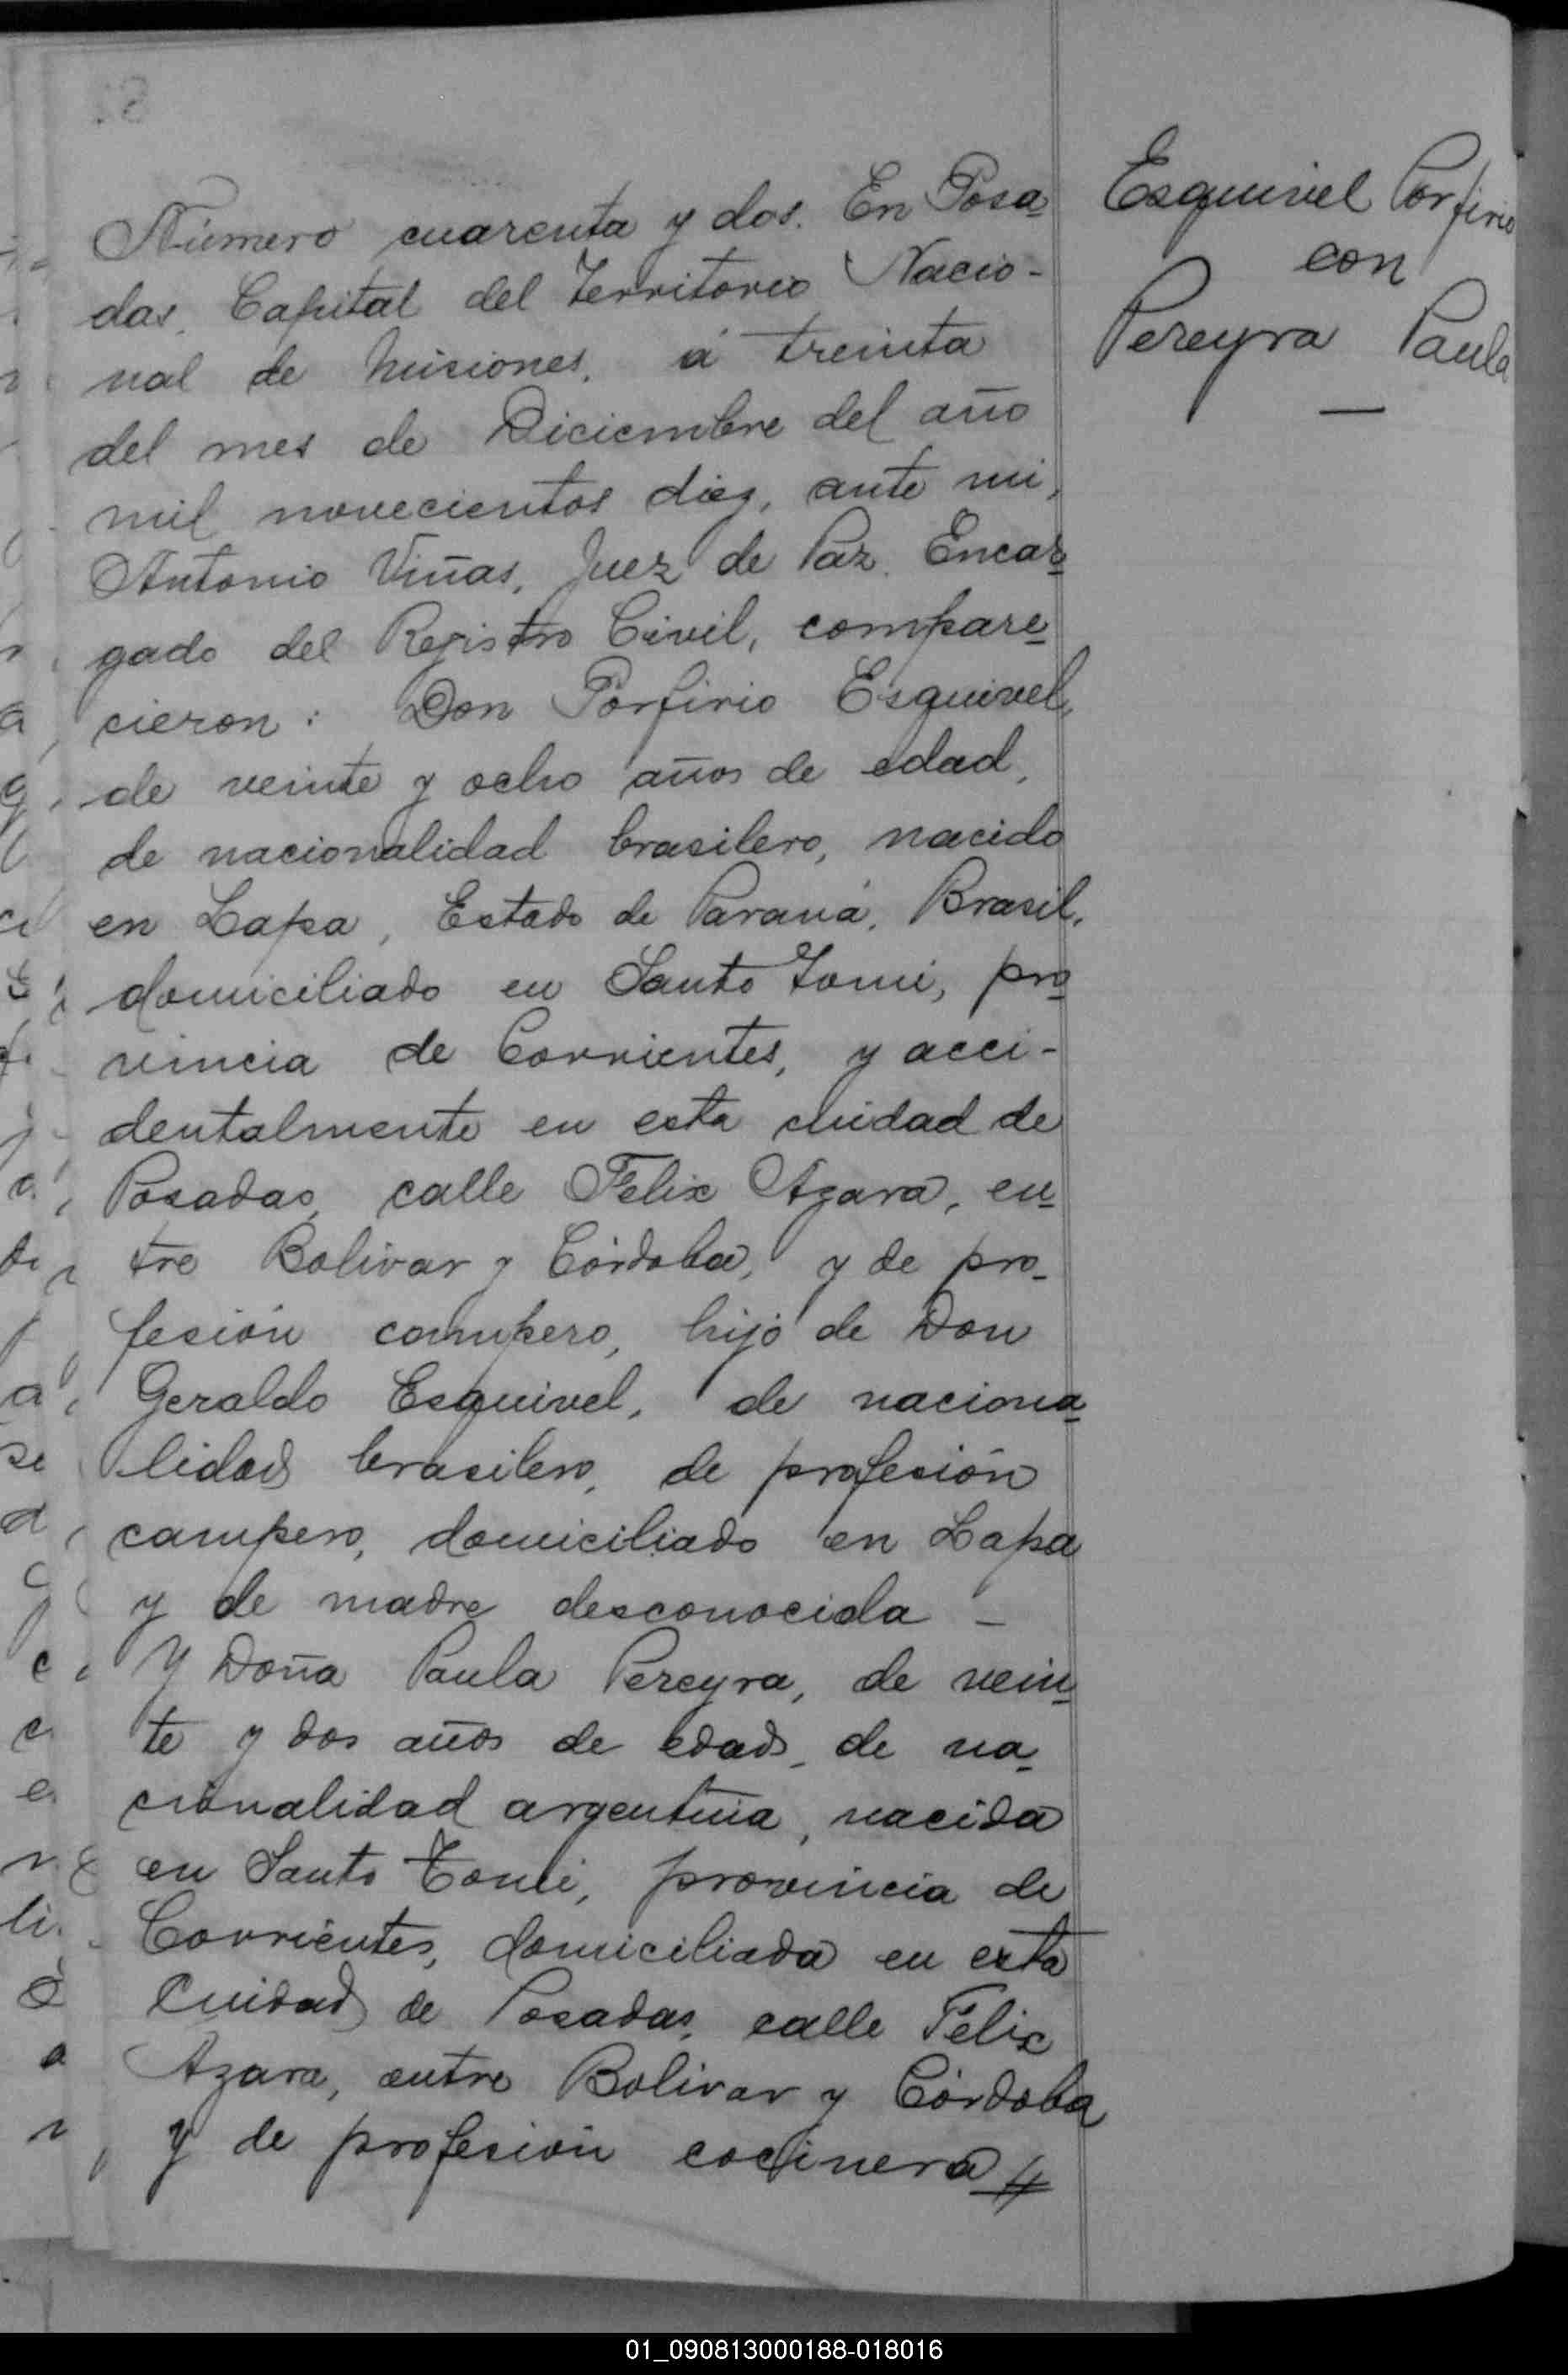 Número cuarenta y dos. En Posa
das, Capital del Territorio Nacio-
nal de Misiones, á treinta
del mes de Diciembre del año
mil novecientos diez, ante mi,
Antonio Viñas, Juez de Paz Encar
gado del Registro Civil, compare
cieron: Don Porfirio Esquivel,
de veinte y ocho años de edad,
de nacionalidad brasilero, nacido
en Lapa, Estado de Paraná, Brasil,
domiciliado en Santo Tomé, pro
vincia de Corrientes, y acci-
dentalmente en esta ciudad de
Posadas, calle Felix Azara, en
tre Bolivar y Córdoba, y de pro-
fesión campero, hijo de Don
Geraldo Esquivel, de naciona
lidad brasilero, de profesión
campero, domiciliado en Lapa
y de madre desconocida -
Y Doña Paula Pereyra, de vein
te y dos años de edad, de na-
cionalidad argentina, nacida
en Santo Tomé, provincia de
Corrientes, domiciliada en esta
Ciudad de Posadas, calle Felix
Azara, entre Bolivar y Córdoba
y de profesión cocinera
Esquivel Porfirio
con
Pereyra Paula
01_090813000188-018016